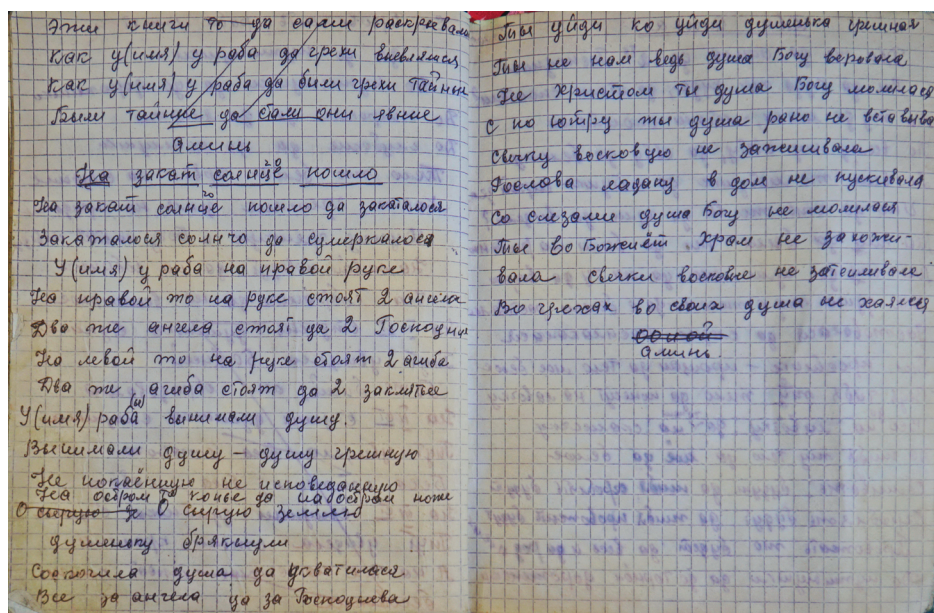 Эти книги то да сами раскрывали
Как у(имя) у раба да грехи выевлялися
Как у(имя) у раба да были грехи тайны
Были тайные да стали они явные
Аминь
На закат солнце го пошло
На закат солнце го пошло да закаталося
Закаталося солнчо да сумеркалося
У(имя) у раба на правой руке
На правой то на руке стоят 2 ангела
Два же ангела стоят да 2 Господни
На левой то на руке стоят 2 агиба
Два же агиба стоят да 2 заклятые
У(имя) раба (ы) вынимали душу.
Вынимали душу – душу грешную
Не покаённую не исповеданую
На остром то копье да на востром ноже
О сырую з О сырую землю
душеньку брякнули
Соскочила душа да ухватилася
Все за ангела да за Господнева
Ты уйди ко уйди душенька грешная
Ты не нам ведь душа Богу веровала
Не Христом ты душа Богу молилася
С по ютру ты душа рано не встывала
Свечку восковую не зажигивала
Гослова ладану в дом не пускивала
Со слезами душа Богу не молилася
Ты во Божиёт Храм не захожи-
вала свечки восковые не затепливала
Во грехах во своих душа не хаялися
аминь.